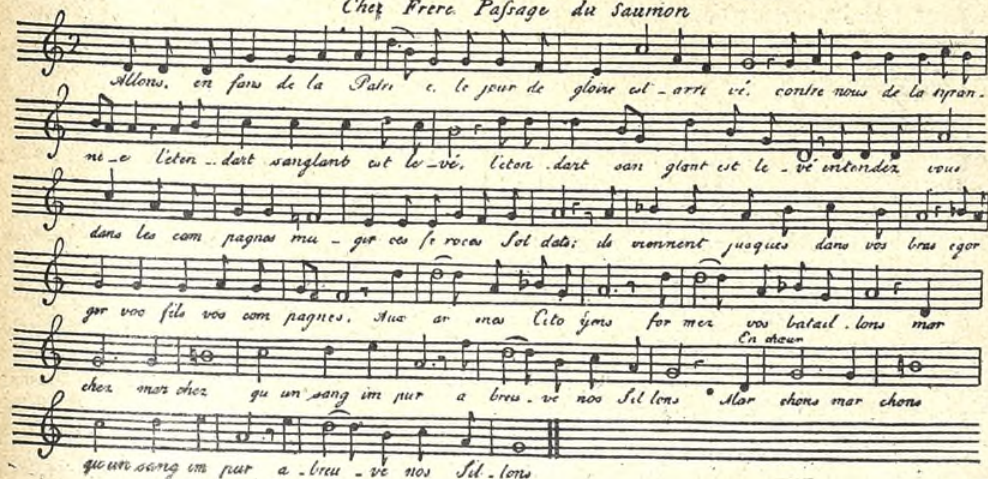 Chez Frere Passage du Saumon
Allons, en fans de la Patri e, le jour de gloire est - arri vé, contre nous de la tiran -
ni - e l'eten - dart sanglant est le - vé, l'eten - dart san glant est le - vé entendez vous
dans les cam pagnes mu - gir ces fe roces Sol dats; ils viennent jusques dans vos bras egor
ger vos fils vos com pagnes. Aux ar mes Cito yens for mez vos batail - lons mar
En chœur
chez mar chez qu un sang im pur a breu - ve nos Sil lons Mar chons mar chons
qu'un sang im pur a - breu - ve nos Sil - lons